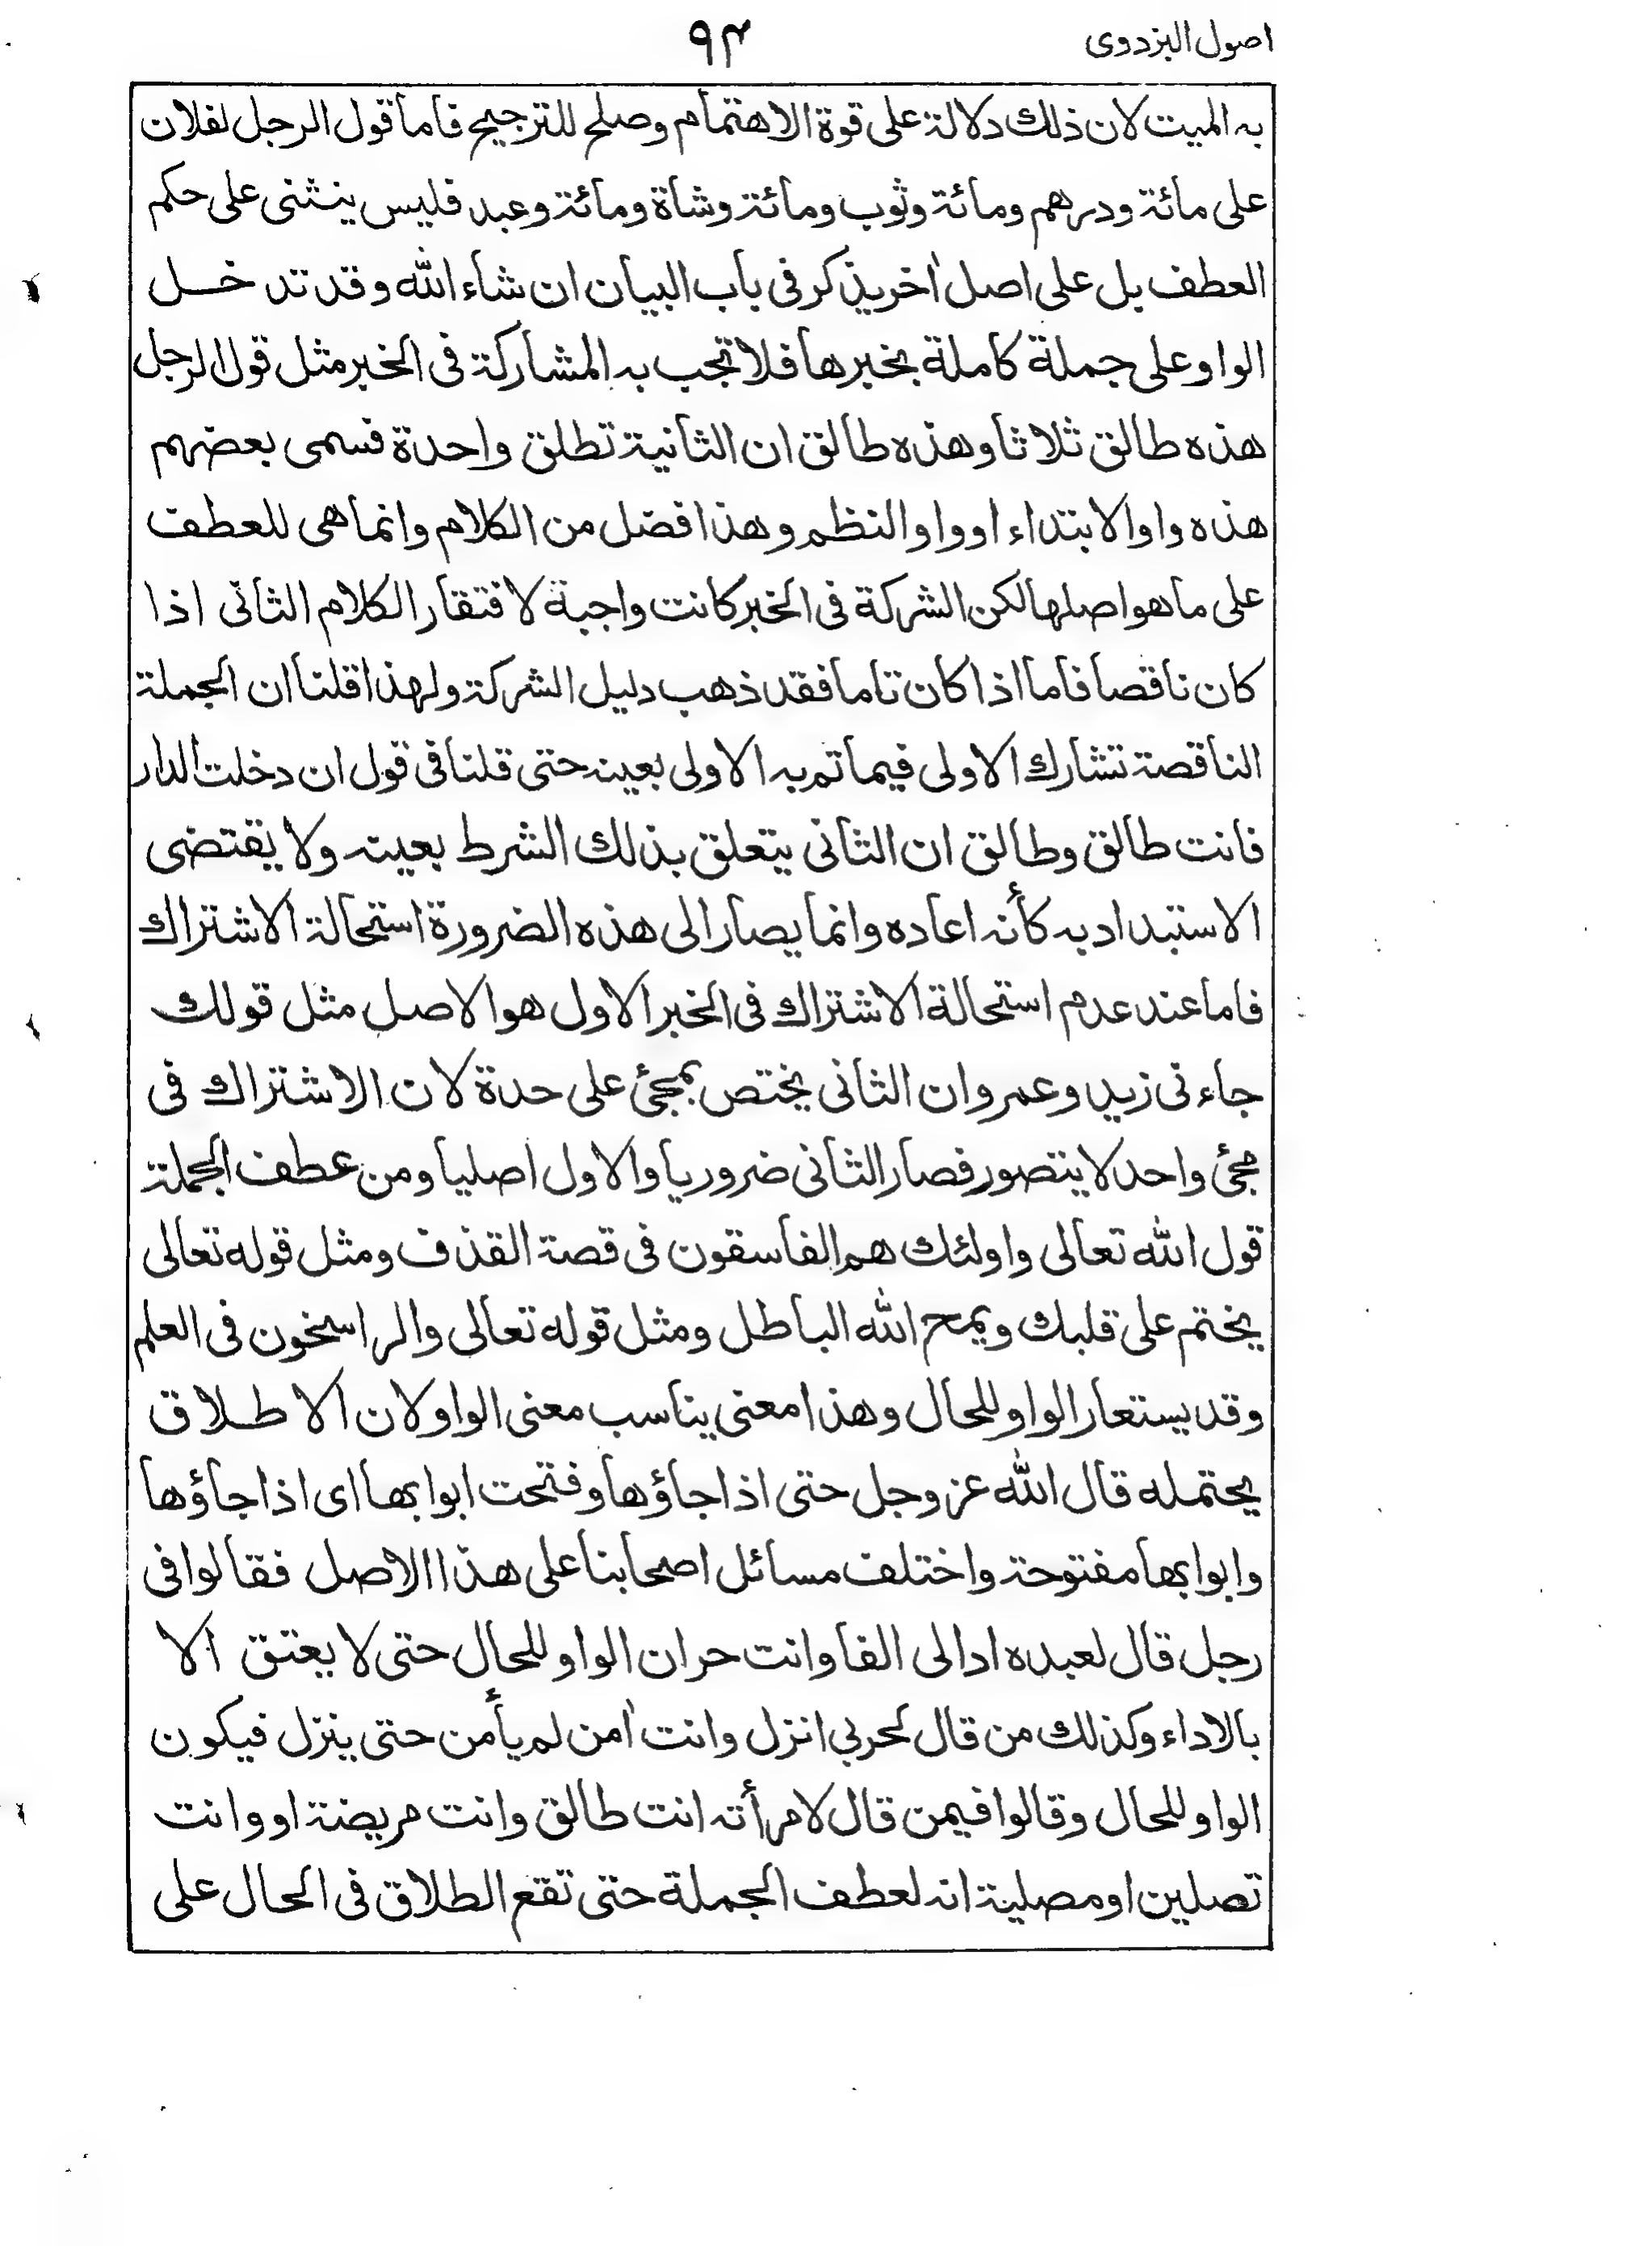 اصول البزدوی
۹۴
به الميت لان ذلك دلالة على قوة الاهتمام وصلح للترجيح فاما قول الرجل لفلان
على مائة ودرهم ومائة وثوب ومائة وشاة ومائة وعبد فليس ينثنى على حكم
العطف بل على اصل اٰخر يذكر فى باب البيان ان شاء الله وقد تدخل
الواو على جملة كاملة بخبرها فلا تجب به المشاركة فى الخبر مثل قول الرجل
هذه طالق ثلاثا وهذه طالق ان الثانية تطلق واحدة فسمى بعضهم
هذه واو الابتداء او واو النظم وهذا افضل من الكلام وانما هى للعطف
على ما هو اصلها لكن الشركة فى الخبر كانت واجبة لافتقار الكلام الثانى اذا
كان ناقصا فاما اذا كان تاما فقد ذهب دليل الشركة ولهذا قلنا ان الجملة
الناقصة تشارك الاولى فيما تم به الاولى بعينه حتى قلنا فى قول ان دخلت الدار
فانت طالق وطالق ان الثانى يتعلق بذلك الشرط بعينه ولا يقتضى
الاستبداد به كأنه اعاده وانما يصار الى هذه الضرورة استحالة الاشتراك
فاما عند عدم استحالة الاشتراك فى الخبر الاول هو الاصل مثل قولك
جاءنى زيد وعمرو ان الثانى يختص بمجئ على حدة لان الاشتراك فى
مجئ واحد لا يتصور فصار الثانى ضروريا والاول اصليا ومن عطف الجملة
قول الله تعالى واولئك هم الفاسقون فى قصة القذف ومثل قوله تعالى
يختم على قلبك ويمح الله الباطل ومثل قوله تعالى والراسخون فى العلم
وقد يستعار الواو للحال وهذا معنى يناسب معنى الواو لان الاطلاق
يحتمله قال الله عز وجل حتى اذا جاؤها وفتحت ابوابها اى اذا جاؤها
وابوابها مفتوحة واختلف مسائل اصحابنا على هذا الاصل فقالوا فى
رجل قال لعبده اد الى الفا وانت حر ان الواو للحال حتى لا يعتق الا
بالاداء وكذلك من قال لحربي انزل وانت اٰمن لم يأمن حتى ينزل فيكون
الواو للحال وقالوا فيمن قال لامرأته انت طالق وانت مريضة او وانت
تصلين او مصلية انه لعطف الجملة حتى تقع الطلاق فى الحال على